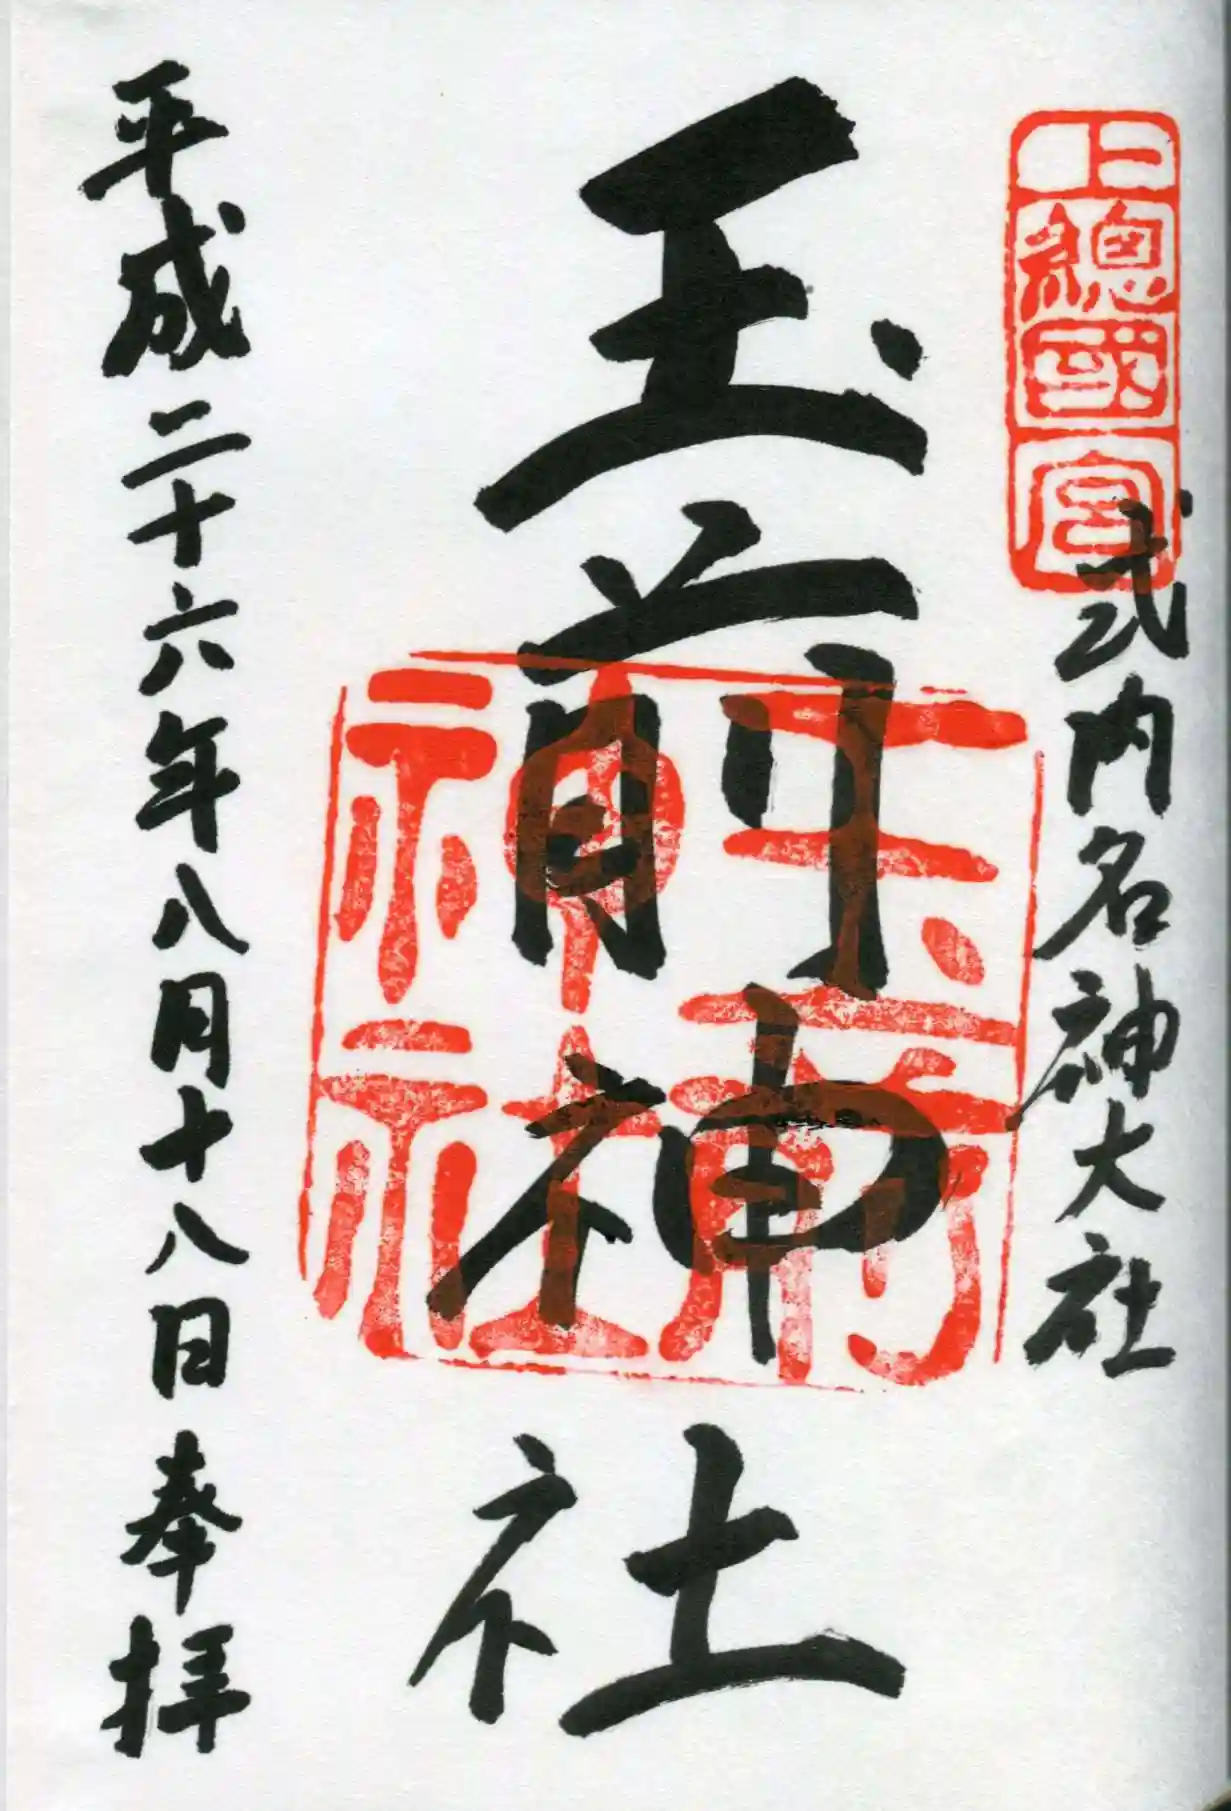 上總國一宮
式内名神大社
玉前神社
玉前神社
平成二十六年八月十八日奉拝